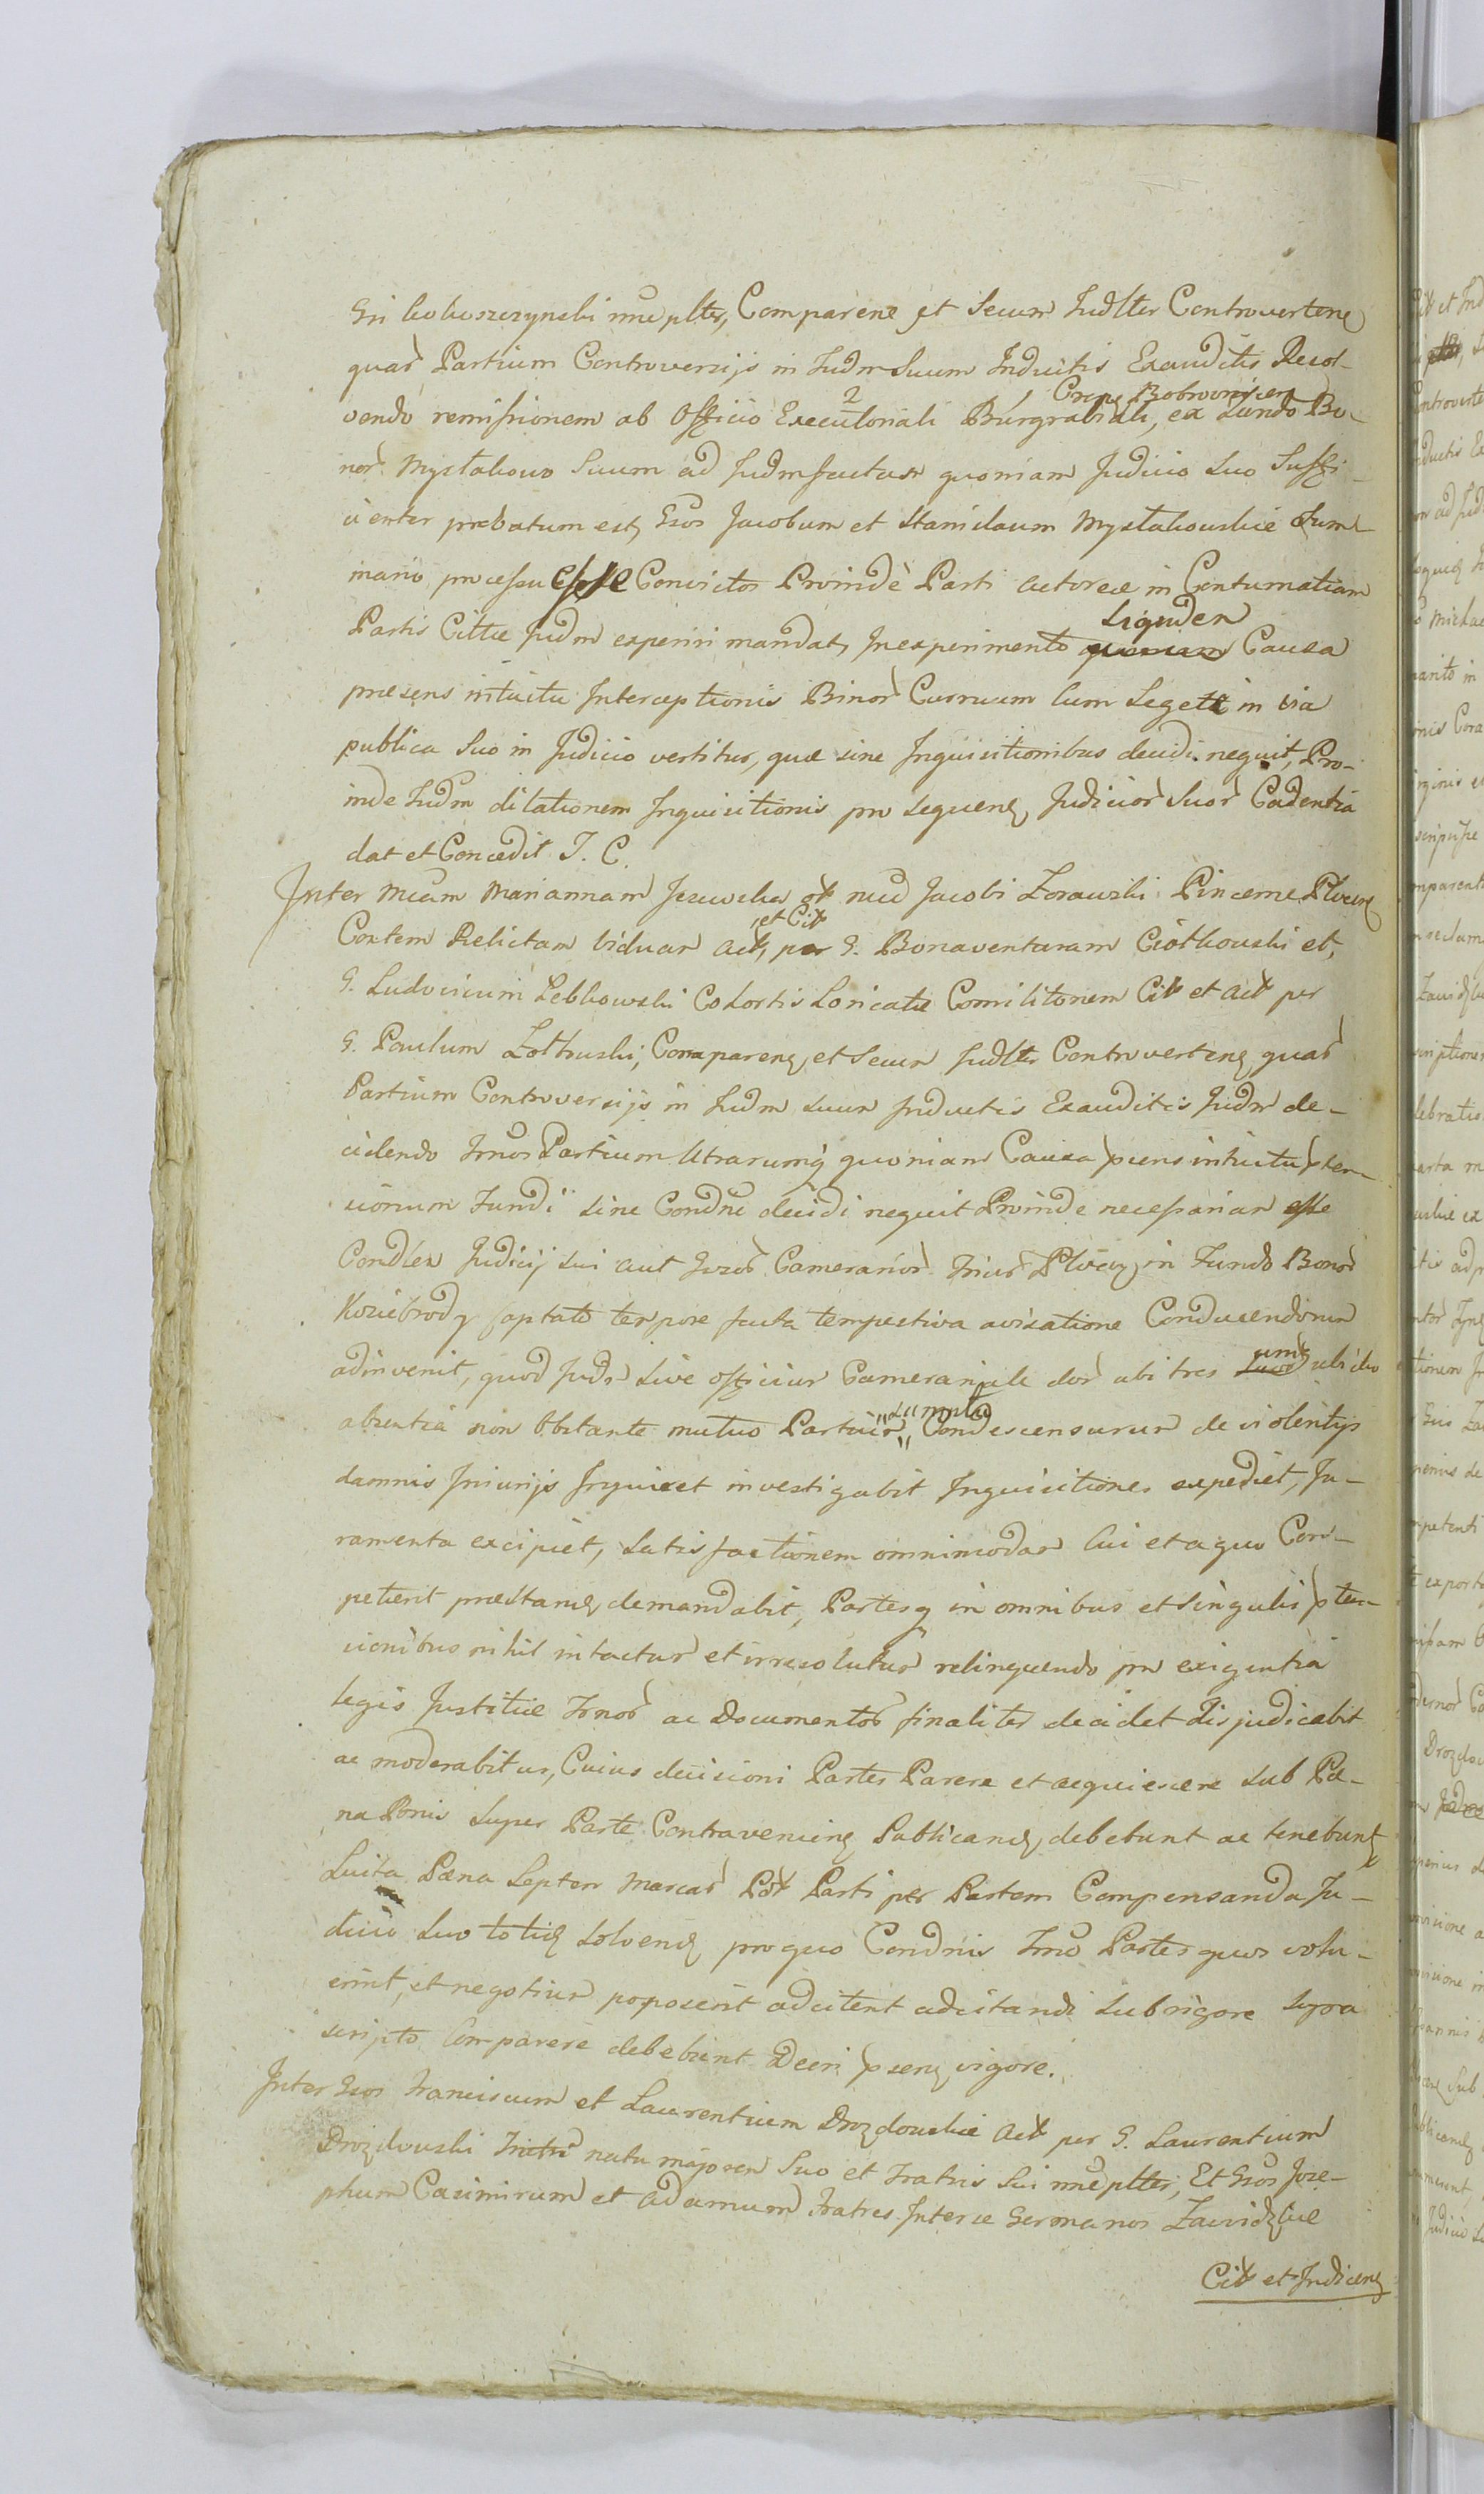 Gsi Kokoszczynski mue pltr, Comparene et Secum Judltr Controvertene
quar Partium Controversijs in Judm Suum Inductis Exauditis Resol-
Crepe Bobrovniscen
vendo remissionem ab Officio Executoriali Burgrabiali, ex Fundo Bo-
nor Mystakowo Suum ad Judm factam quoniam Judicio Suo Suffi-
cienter probatum est, Gsos Jacobum et Stanislaum Mystakouskie Sum-
mario processu Esse Convictos Proinde Parti actoreæ in Contumatiam
Partis Cittæ Judm experiri mandat, Inexperimento
Siquidem
quoniam Causa
presens intuitu Interceptionis Binor Curruum Cum Segete in via
publica Suo in Judicio vertitur, quæ sine Inquisitionibus decidi nequit, Pro-
inde Judm dilationem Inquisitionis pro sequene Judicior Suor Cadentia
dat et Concedit J. C.
Inter Mcam Mariannam Jezewska ot mci Jacobi Zorawski Pincerne Plocen
et Cit
Contem Relictam Viduam Act, per G. Bonaventuram Ciotkouski et,
G. Ludovicum Lebkowski Cohortis Loricatæ Comilitonem Cit et Act per
G. Paulum Zottouski, Comparene et Secum Judltr Controvertene quar
Partium Controversijs in Judm Suum Inductis Exauditis Judm de-
cidendo Jnos Partium Utrarumq quoniam Causa psens intuitu pten-
sionum Fundi sine Condne decidi nequit Proinde necessariam esse
Condlen Judicij Sui aut Gsor Camerarior Trius Plocen, in Fundo Bonor
Koziebrody captato tempore facta tempestiva avisatione Conducendorum
adinvenit, quod Judm Sive officium Camerariale dor ubi tres
unis
ubi duo
absentia non Obstante mutuo Partium
sumpto
Condescensurum de violentijs
damnis Injurijs Inquiret investigabit Inquisitiones expediet, Ju-
ramenta excipiet, Satisfactionem omnimodam Cui et a quo Com-
petierit præstane demandabit, Partesq in omnibus et Singulis pten-
sionibus nihil intactum et irresolutum relinquendo pro exigentia
legis Justitiæ Jnor ac Documentor finaliter decidet disjudicabit
ac moderabitur, Cuius decisioni Partes Parere et acquiescere Sub Pæ-
na Ponis Super Parte Contraveniene Publicane, debebunt ac tenebunt
Luita Pæna Septem Marcar Pot Parti per Partem Compensanda Ju-
dicio Suo totie Solvene pro quo Condnis Jno Partes quos volu-
erint, et negotium poposcerit adcitent adcitandi Sub rigore Supra
scripto Comparere debebunt Decri psene vigore.
Inter Gsos Franciscum et Laurentium Drozdouskie Act per G. Laurentium
Drozdouski Fratre natu majorem Suo et Fratris Sui mne pltr, Et Gsos Jose-
phum Casimirum et Adamum Fratres Inter se Germanos Zawidzkie
Cit et Indicene